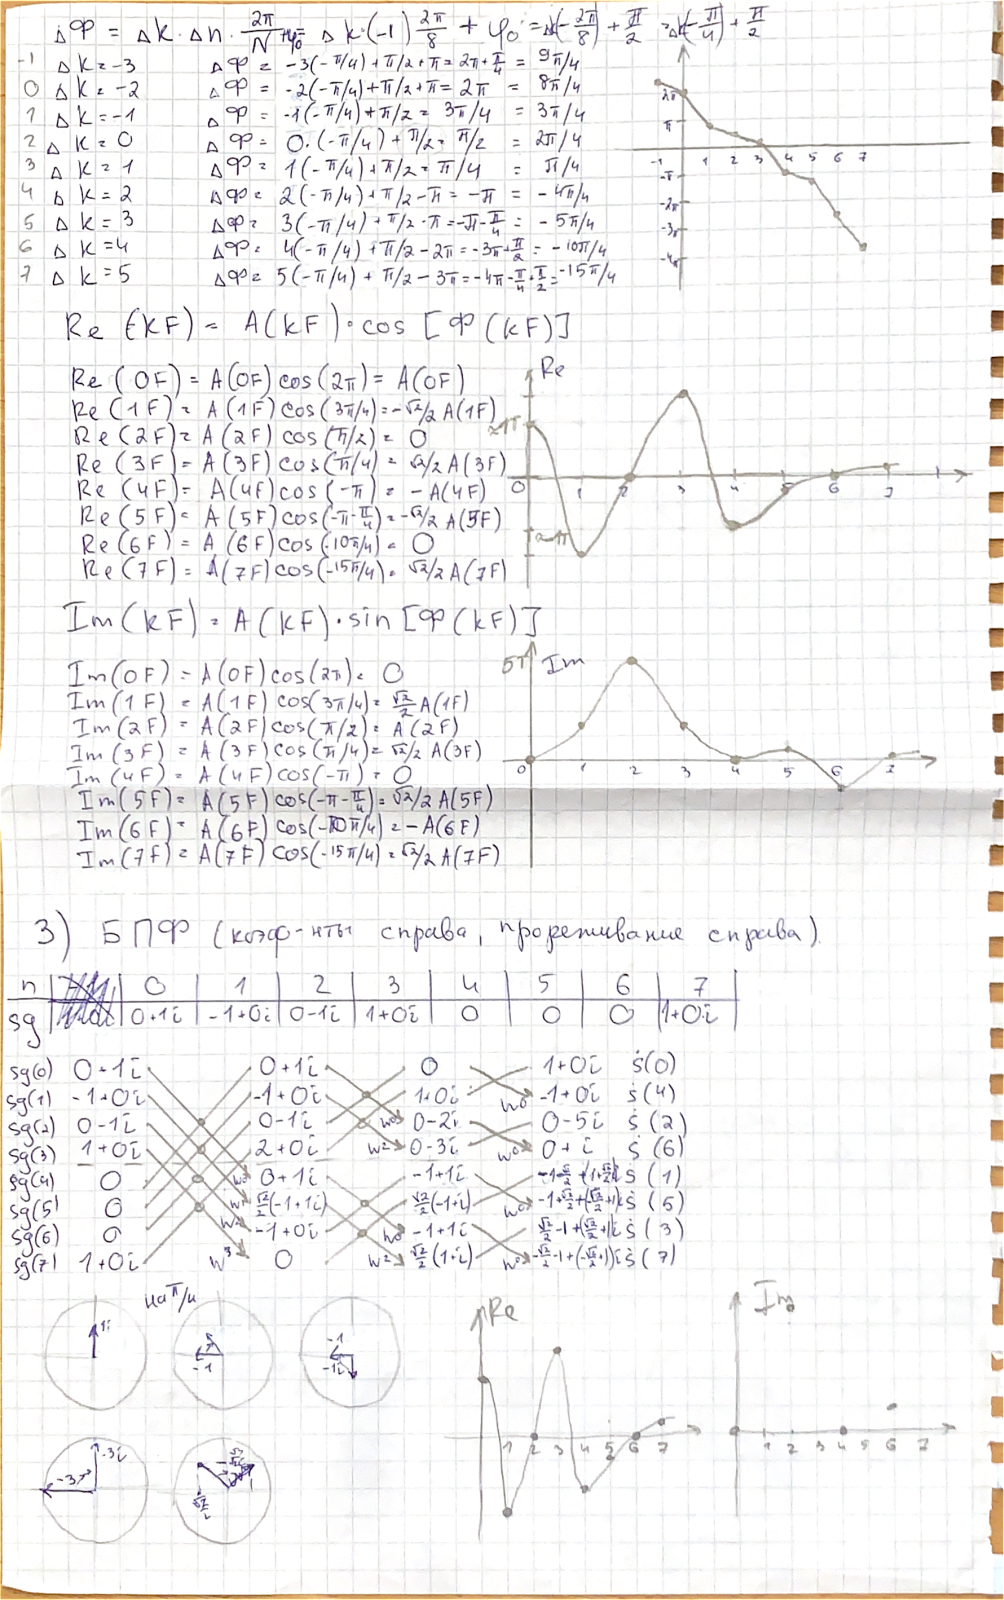 ΔΦ = Δk · Δn · 2π/N + φ₀ = Δk·(-1) 2π/8 + φ₀ = Δk(-2π/8) + π/2 = Δk(-π/4) + π/2
-1 Δk = -3 ΔΦ = -3(-π/4)+π/2+π = 2π+π/4 = 9π/4
0 Δk = -2 ΔΦ = -2(-π/4)+π/2+π = 2π = 8π/4
1 Δk = -1 ΔΦ = -1(-π/4)+π/2 = 3π/4 = 3π/4
2 Δk = 0 ΔΦ = 0·(-π/4)+π/2 = π/2 = 2π/4
3 Δk = 1 ΔΦ = 1(-π/4)+π/2 = π/4 = π/4
4 Δk = 2 ΔΦ = 2(-π/4)+π/2-π = -π = -4π/4
5 Δk = 3 ΔΦ = 3(-π/4)+π/2-π = -π-π/4 = -5π/4
6 Δk = 4 ΔΦ = 4(-π/4)+π/2-2π = -3π+π/2 = -10π/4
7 Δk = 5 ΔΦ = 5(-π/4)+π/2-3π = -4π-π/4+π/2 = -15π/4
2π
π
-1 1 2 3 4 5 6 7
-π
-2π
-3π
-4π
Re (kF) = A(kF)·cos[Φ(kF)]
Re(0F) = A(0F)cos(2π) = A(0F)
Re(1F) = A(1F)cos(3π/4) = -√2/2 A(1F)
Re(2F) = A(2F)cos(π/2) = 0
Re(3F) = A(3F)cos(π/4) = √2/2 A(3F)
Re(4F) = A(4F)cos(-π) = -A(4F)
Re(5F) = A(5F)cos(-π-π/4) = -√2/2 A(5F)
Re(6F) = A(6F)cos(-10π/4) = 0
Re(7F) = A(7F)cos(-15π/4) = √2/2 A(7F)
Re
0 1 2 3 4 5 6 7
Im(kF) = A(kF)·sin[Φ(kF)]
Im(0F) = A(0F)cos(2π) = 0
Im(1F) = A(1F)cos(3π/4) = √2/2 A(1F)
Im(2F) = A(2F)cos(π/2) = A(2F)
Im(3F) = A(3F)cos(π/4) = √2/2 A(3F)
Im(4F) = A(4F)cos(-π) = 0
Im(5F) = A(5F)cos(-π-π/4) = √2/2 A(5F)
Im(6F) = A(6F)cos(-10π/4) = -A(6F)
Im(7F) = A(7F)cos(-15π/4) = √2/2 A(7F)
5T Im
0 1 2 3 4 5 6 7
3) БПФ (коэф-нты справа, прореживание справа)
n 0 1 2 3 4 5 6 7
sg 0+1i -1+0i 0-1i 1+0i 0 0 0 1+0i
sg(0) 0+1i 0+1i 0 1+0i ṡ(0)
sg(1) -1+0i -1+0i 1+0i w⁰ -1+0i ṡ(4)
sg(2) 0-1i 0-1i w⁰ 0-2i 0-5i ṡ(2)
sg(3) 1+0i 2+0i w² 0-3i w⁰ 0+i ṡ(6)
sg(4) 0 w⁰ 0+1i -1+1i ṡ(1)
sg(5) 0 w¹ √2/2(-1+1i) √2/2(-1+i) w⁰ ṡ(5)
sg(6) 0 w² -1+0i w⁰ -1+1i √2/2-1+(√2/2+1)i ṡ(3)
sg(7) 1+0i w³ 0 w² √2/2(1+i) w⁰ -√2/2-1+(-√2/2+1)i ṡ(7)
на π/4
1i
-1
-1
-1i
-3
-3i
Re
1 2 3 4 5 6 7
Im
1 2 3 4 5 6 7